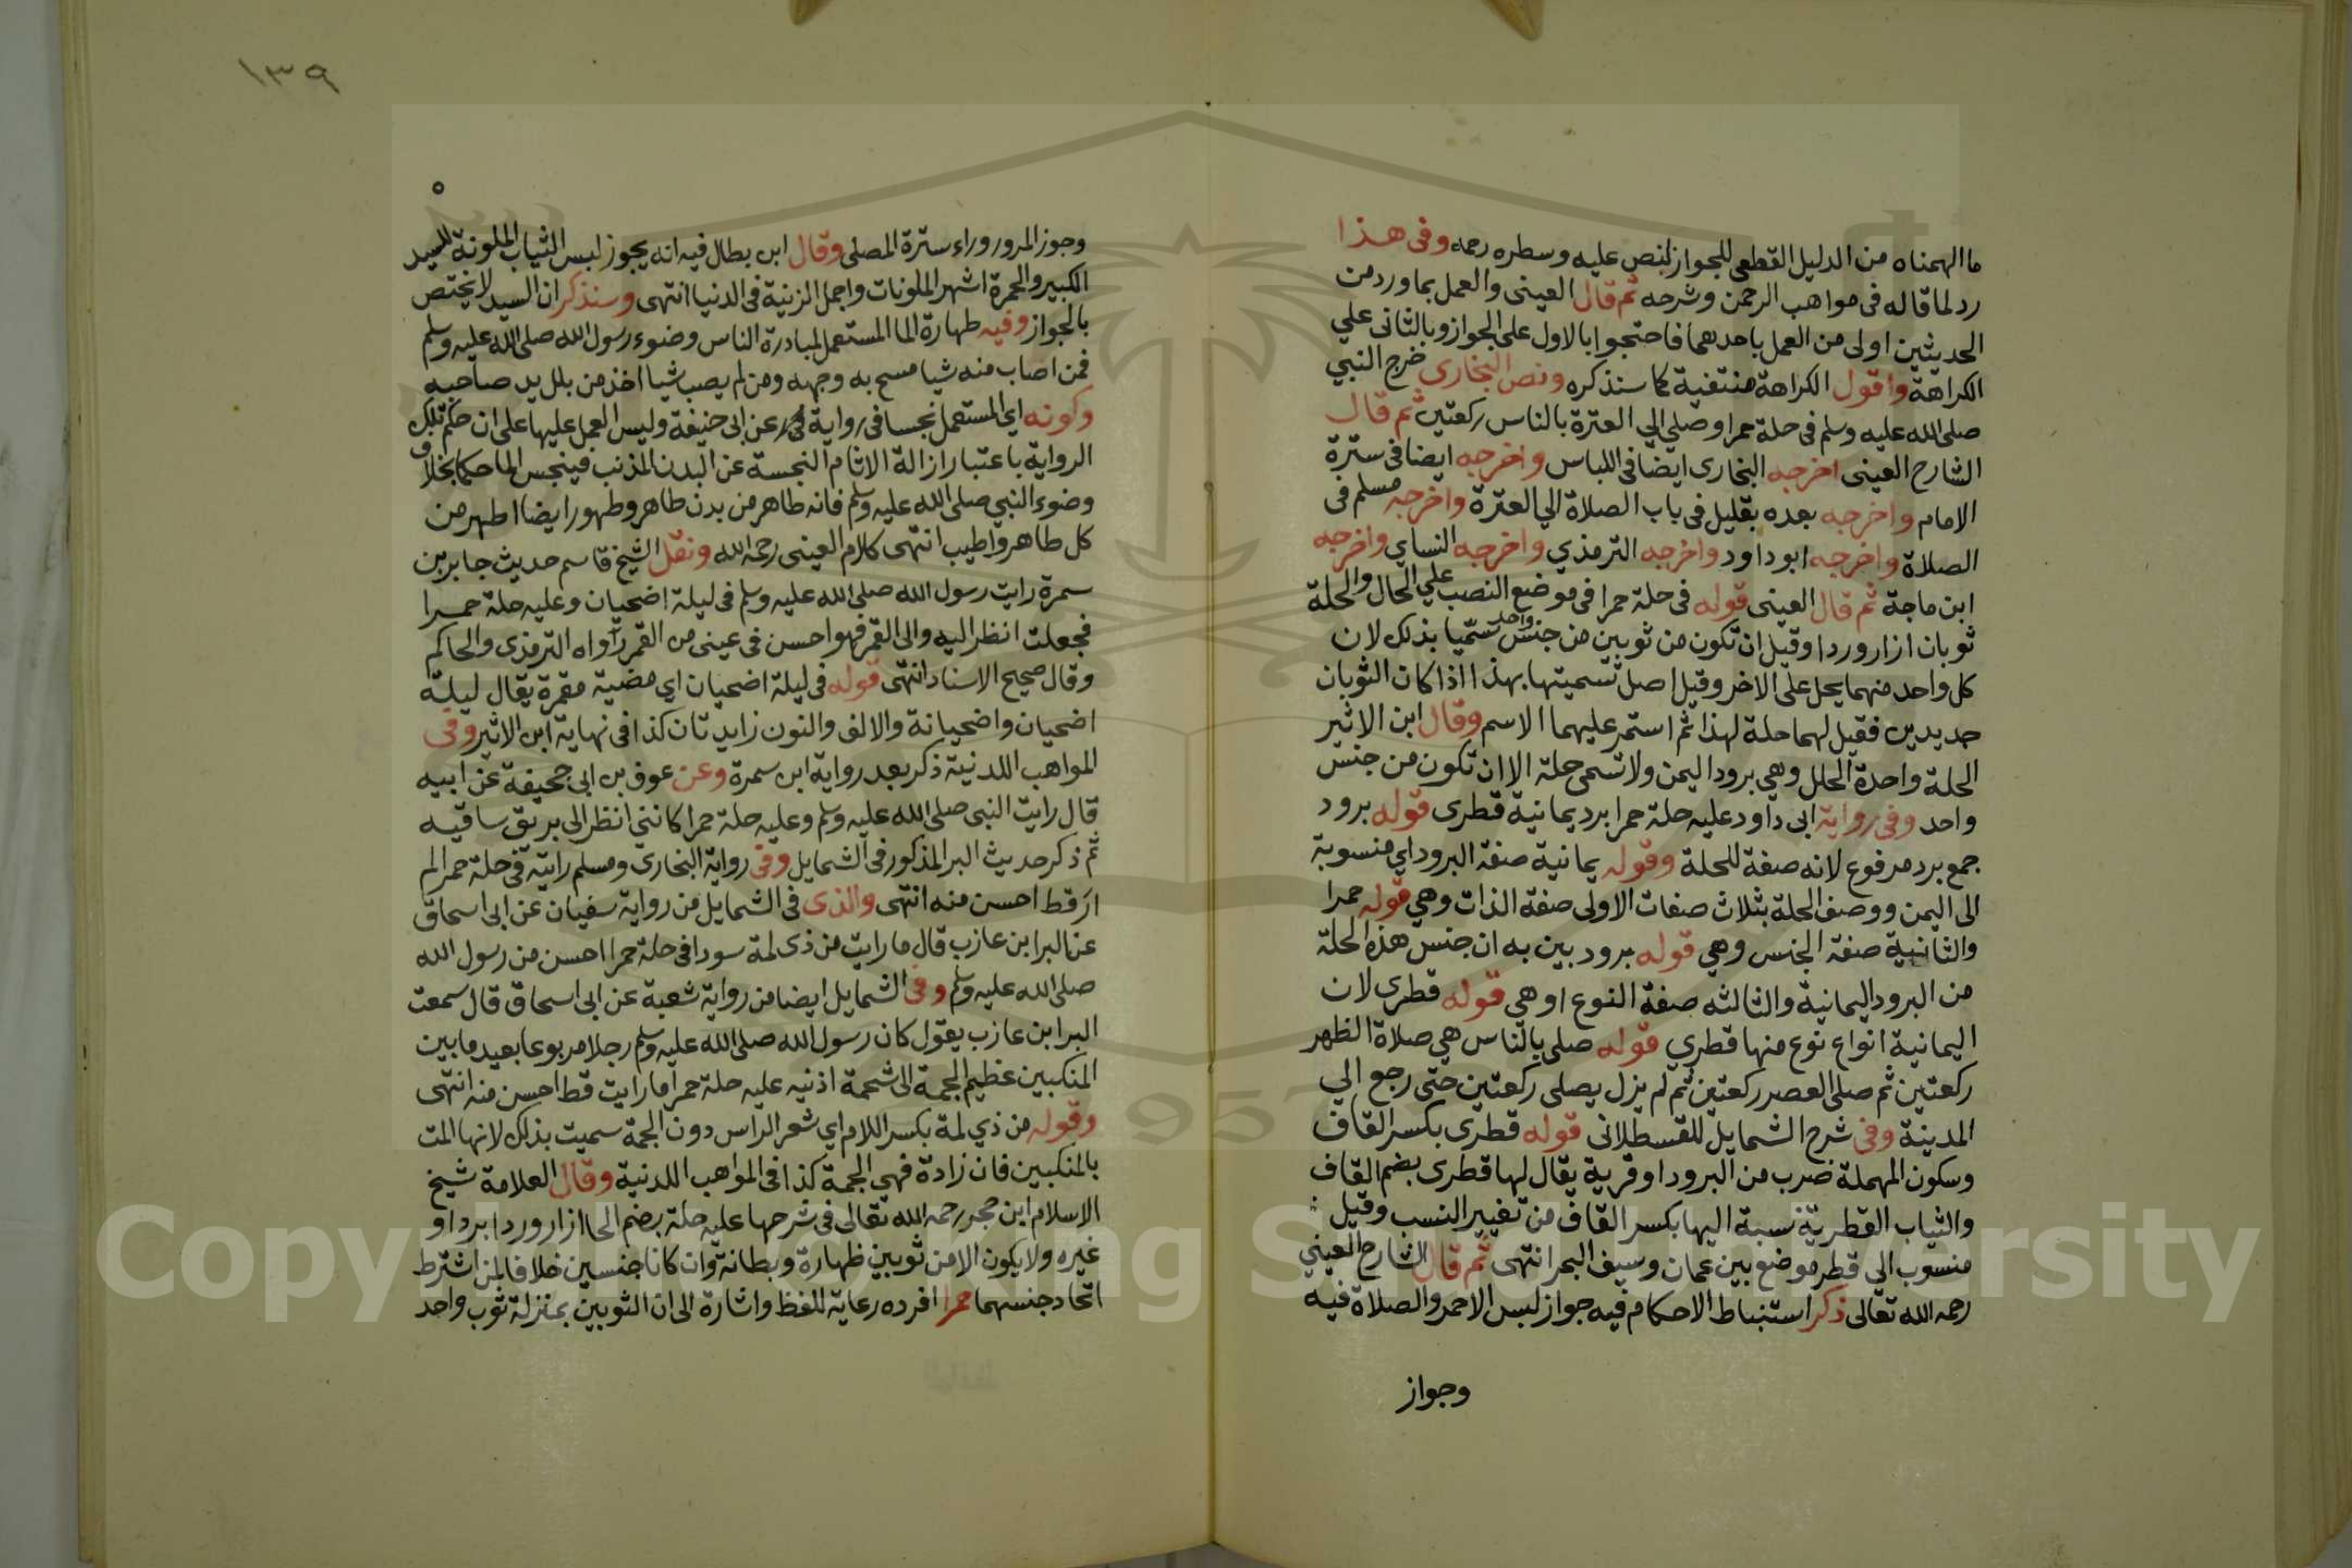 ما الهمناه من الدليل القطعى للجواز لنص عليه وسطره رحمه وفى هذا
رد لما قاله فى مواهب الرحمن وشرحه ثم قال العينى والعمل بما ورد من
الحديثين اولى من العمل باحدهما فاحتجوا بالاول على الجواز وبالثانى علي
الكراهة واقول الكراهة منتفية كما سنذكره ونص البخارى خرج النبي
صلى الله عليه وسلم فى حلة حمرا وصلي الي العترة بالناس ركعتين ثم قال
الشارح العينى اخرجه البخارى ايضا فى اللباس واخرجه ايضا فى سترة
الامام واخرجه بعده بقليل فى باب الصلاة الي العترة واخرجه مسلم فى
الصلاة واخرجه ابو داود واخرجه الترمذي واخرجه النساي واخرجه
ابن ماجة ثم قال العينى قوله فى حلة حمرا فى موضع النصب علي الحال والحلة
ثوبان ازار وردا وقيل ان تكون من ثوبين من جنس واحد سميا بذلك لان
كل واحد منهما يحل على الاخر وقيل اصل تسميتها بهذا اذا كان الثوبان
جديدين فقيل لهما حلة لهذا ثم استمر عليهما الاسم وقال ابن الاثير
الحلة واحدة الحلل وهي برود اليمن ولا تسمى حلة الا ان تكون من جنس
واحد وفى رواية ابى داود عليه حلة حمرا برد يمانية قطرى قوله برود
جمع برد مرفوع لانه صفة للحلة وقوله يمانية صفة البرود اي منسوبة
الى اليمن ووصف الحلة بثلاث صفات الاولى صفة الذات وهي قوله حمرا
والثانية صفة الجنس وهي قوله برود بين به ان جنس هذه الحلة
من البرود اليمانية والثالثه صفة النوع اوهي قوله قطرى لان
اليمانية انواع نوع منها قطري قوله صلى بالناس هي صلاة الظهر
ركعتين ثم صلى العصر ركعتين ثم لم يزل يصلى ركعتين حتى رجع الي
المدينة وفى شرح الشمايل للقسطلانى قوله قطرى بكسر القاف
وسكون المهملة ضرب من البرود او قرية يقال لها قطرى بضم القاف
والثياب القطرية نسبة اليها بكسر القاف من تغيير النسب وقيل
منسوب الي قطر موضع بين عمان وسيف البحر انتهى ثم قال الشارح العيني
رحمه الله تعالى ذكر استنباط الاحكام فيه جواز لبس الاحمر والصلاة فيه
وجواز
١٣٩
وجوز المرور وراء سترة المصلى وقال ابن بطال فيه انه يجوز لبس الثياب الملونة للسيد
الكبير والحمرة اشهر الملونات واجمل الزينية فى الدنيا انتهى وسنذكر ان السيد لا يختص
بالجواز وفيه طهارة الما المستعمل لمبادرة الناس وضوء رسول الله صلى الله عليه وسلم
فمن اصاب منه شيا مسح به وجهه ومن لم يصب شيا اخذ من بلل يد صاحبه
وكونه اي المستعمل نجسا فى رواية عن ابى حنيفة وليس العمل عليها على ان حكم تلك
الرواية باعتبار ازالة الاثام النجسة عن البدن المذنب فينجس الما حكما بخلاف
وضوء النبي صلى الله عليه وسلم فانه طاهر من بدن طاهر وطهور ايضا اطهر من
كل طاهر واطيب انتهى كلام العينى رحمه الله ونقل الشيخ قاسم حديث جابر بن
سمرة رايت رسول الله صلى الله عليه وسلم فى ليلة اضحيان وعليه حلة حمرا
فجعلت انظر اليه والى القمر فهو احسن فى عينى من القمر رواه الترمذى والحاكم
وقال صحيح الاسناد انتهى قوله فى ليلة اضحيان اي مضية مقمرة يقال ليلة
اضحيان واضحيانة والالف والنون زايدتان كذا فى نهاية ابن الاثير وفى
المواهب اللدنية ذكر بعد رواية ابن سمرة وعن عوف بن ابى جحيفة عن ابيه
قال رايت النبى صلى الله عليه وسلم وعليه حلة حمرا كاننى انظر الى بريق ساقيه
ثم ذكر حديث البرا المذكور فى الشمايل وفى رواية البخارى ومسلم رايته فى حلة حمرا لم
ار قط احسن منه انتهى والذى فى الشمايل من رواية سفيان عن ابى اسحاق
عن البرا بن عازب قال ما رايت من ذى لمة سودا فى حلة حمرا احسن من رسول الله
صلى الله عليه وسلم وفى الشمايل ايضا من رواية شعبة عن ابى اسحاق قال سمعت
البرا بن عازب يقول كان رسول الله صلى الله عليه وسلم رجلا مربوعا بعيد ما بين
المنكبين عظيم الجمة الى شحمة اذنيه عليه حلة حمرا ما رايت قط احسن منه انتهى
وقوله من ذي لمة بكسر اللام اي شعر الراس دون الجمة سميت بذلك لانها المت
بالمنكبين فان زادة فهي الجمة كذا فى المواهب اللدنية وقال العلامة شيخ
الاسلام ابن حجر رحمه الله تعالى فى شرحها عليه حلة بضم الحا ازار وردا برد او
غيره ولا يكون الا من ثوبين ظهارة وبطانة وان كانا جنسين خلافا لمن اشترط
اتحاد جنسهما حمرا افرده رعاية للفظ واشارة الى ان الثوبين بمنزلة ثوب واحد
Copyright © King Saud University
957